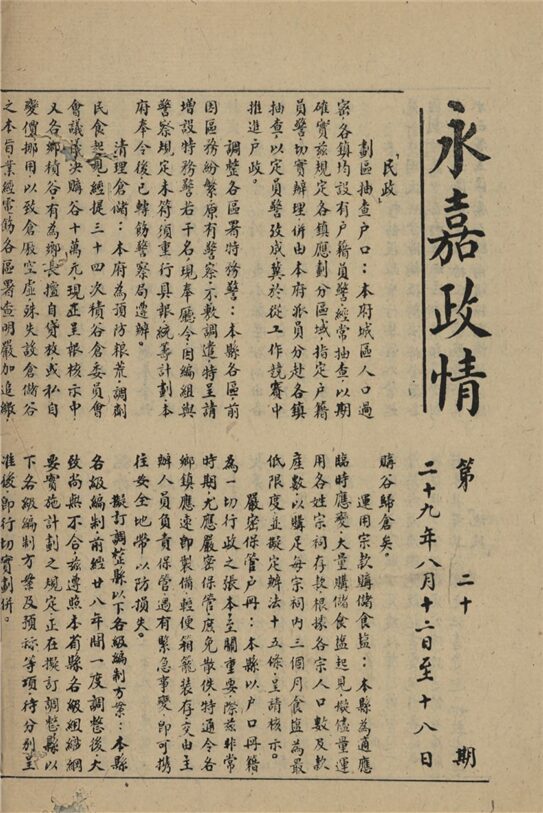 永嘉政情
第二十期
二十九年八月十二日至十八日
民政
劃區抽查户口：本府城區人口過
密，各鎮均設有户籍員警，經常抽查，以期
確實，兹規定各鎮應劃分區域，指定户籍
員警，切實辦理，併由本府派員分赴各鎮
抽查，以定員警攷成，冀於從工作競賽中
推進户政。
調整各區署特務警：本縣各區前
因區務紛繁，原有警察不敷調遣，特呈請
增設特務警若干名，現奉廳令，因編組與
警察規定未符，須重行具報統籌計劃，本
府奉令後，已轉飭警察局遵辦。
清理倉儲：本府為預防粮荒，調劑
民食起見，經提三十四次積谷倉委員會
會議議决，購谷十萬元，現正呈报核示中，
又各鄉積谷，有為鄉長擅自貸放，或私自
變價挪用，以致倉廒空虛，殊失設倉儲谷
之本旨，業經電飭各區署查明，嚴加追繳，
購谷歸倉矣。
運用宗款購儲食盐：本縣為適應
臨時應變，大量購儲食盐起見，擬儘量運
用各姓宗祠存款，根據各宗人口數及款
產數，以購足每宗祠内三個月食盐為最
低限度，並擬定辦法十五條，呈請核示。
嚴密保管户冊：本縣以户口冊籍
為一切行政之張本，至關重要，際兹非常
時期，尤應嚴密保管，庶免散佚，特通令各
鄉鎮應速即製備輕便箱籠裝存，交由主
辦人員負責保管，遇有緊急事變，即可携
往安全地帶，以防損失。
擬訂調整縣以下各級編制方案：本縣
各級編制，前經廿八年間一度調整後，大
致尚無不合，兹遵照本省縣各級組織綱
要實施計劃之規定，正在擬訂調整縣以
下各級編制方案及預標等項，待分别呈
准後，即行切實劃併。